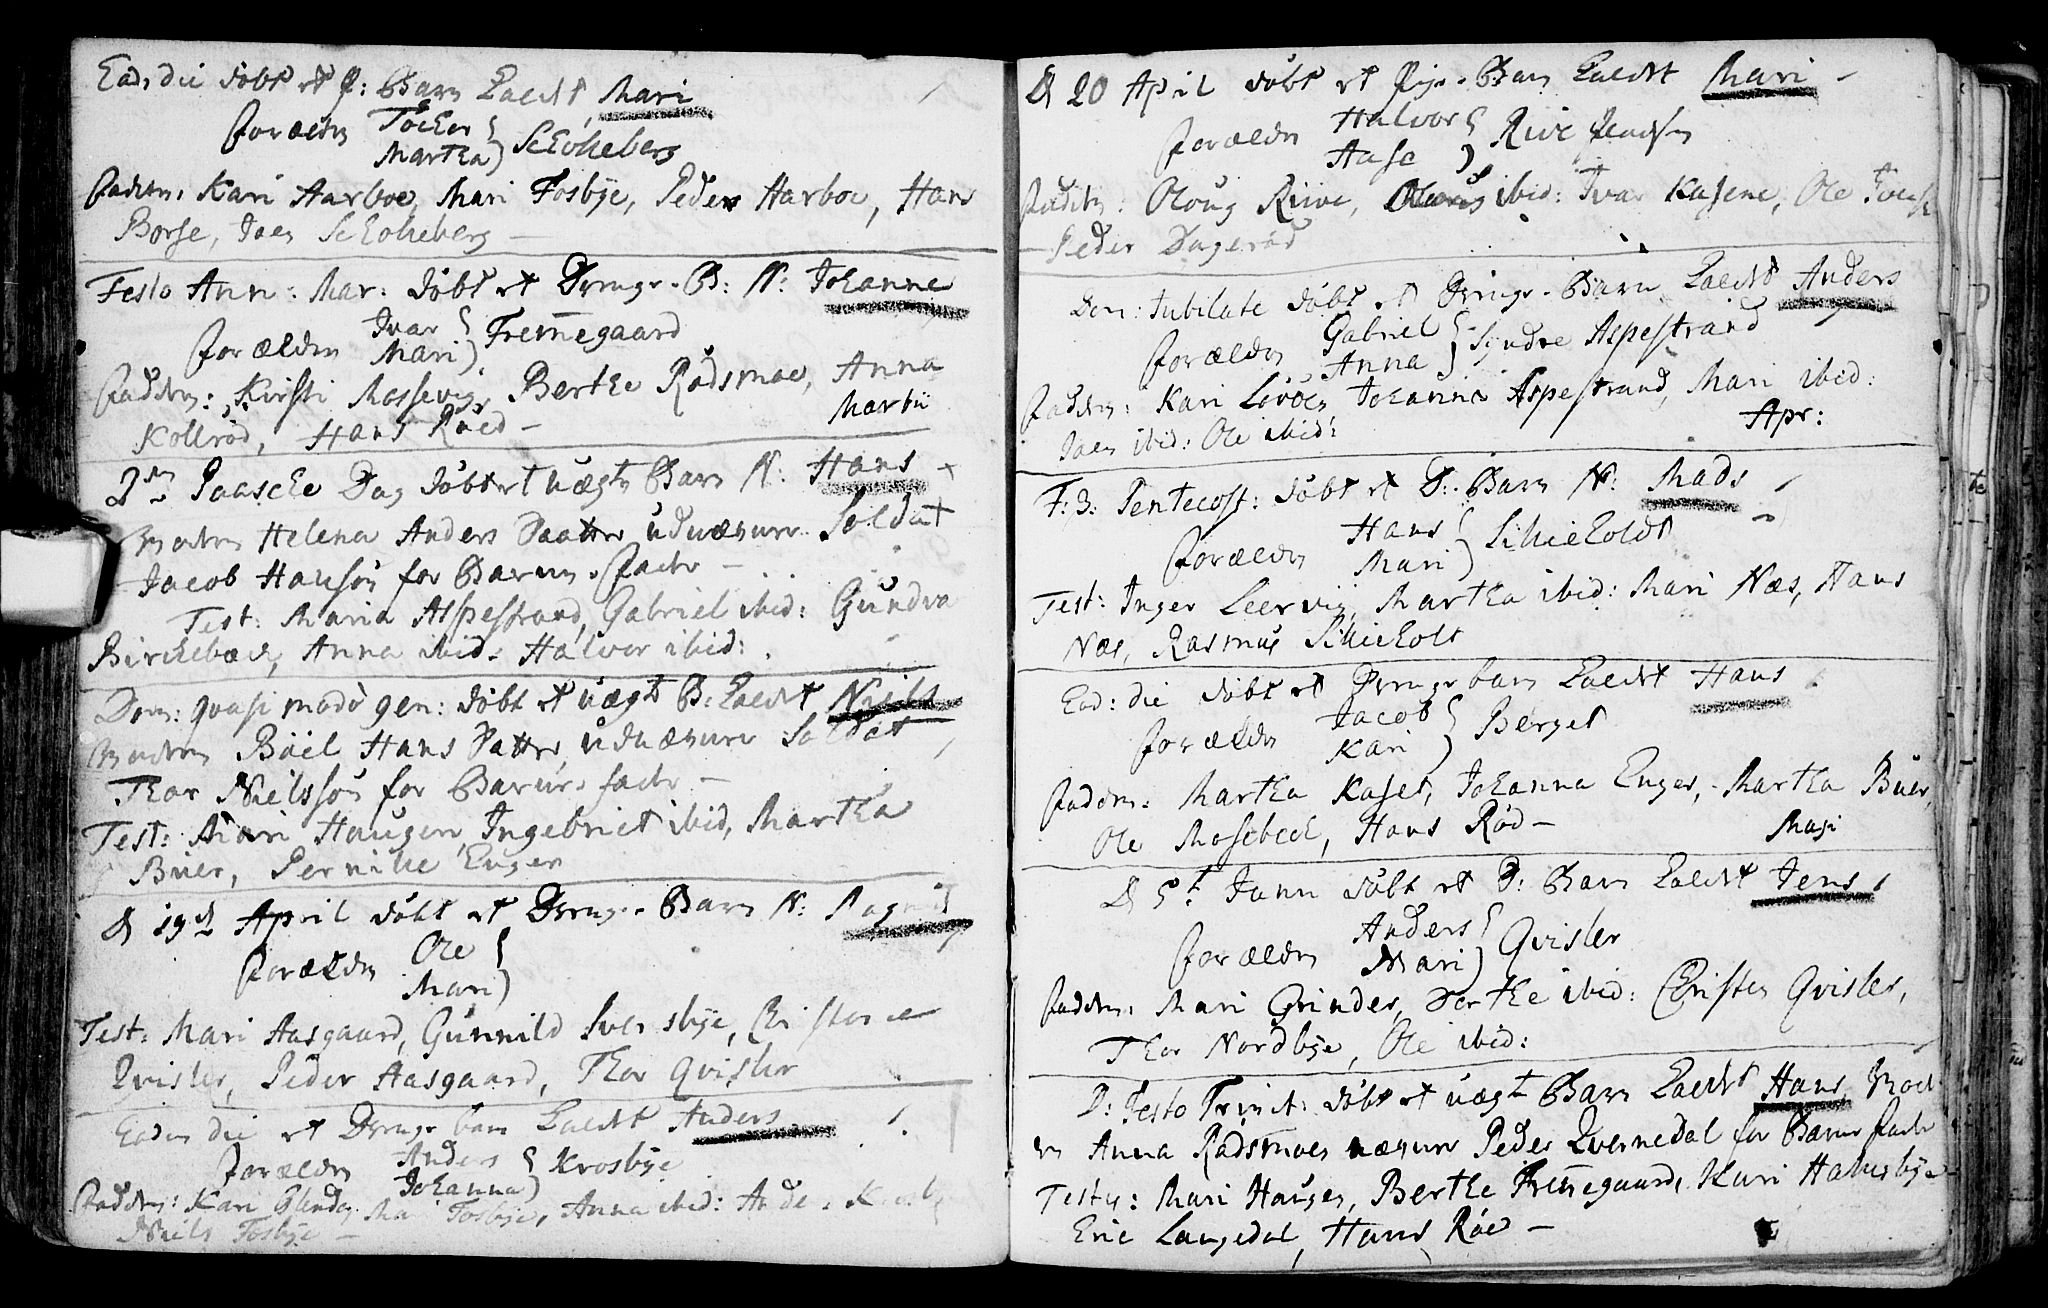 Ead: die döbt et P: Barn kaldt Mari
forældre Tocher Martha Scholleberg
fadder: Kari Aarboe, Mari Fosbÿe, Peder Aarboe, Hans
Borse, Joen Scholleberg
Festo Ann: Mar. döbt et Drenge-B: N: Johanne
forældre Ivar Mari Fremegaard
fadder: Kirsti Mossevig, Berthe Rødsmoe, Anna
Kollrød, Hans Røed –
Martii
2den Paasche Dag döbt et uægte Barn N: Hans
Moder Helena Anders Daatter udnævner Soldat
Jacob Hansön for Barnes fader –
Test: Maria Aspestrand, Gabriel ibid: Gundro
Birchebæch, Anna ibid. Halvor ibid:
Dom: quasi modo gen: döbt et uægte B: kaldt Niels
Moder Böel Hans Datter, udnævner Soldat
Thor Nielssön for Barnets fader –
Test: Mari Haugen, Ingebriet ibid, Martha
Buer, Pernille Enger
D 19de April döbt et Drenge-Barn N:
forældre Ole Mari
Test: Mari Aasgaard, Gunnild Svensbÿe,
Qvisler, Peder Aasgaard, Thor Qvisler
Eadem die et Drenge barn kaldt Anders
forældre Anders Johanna Krosbÿe
Fadder: Kari Mari Fosbÿe, Anna ibid:
Niels Fosbÿe –
D 20 April döbt et Pige-Barn kaldt Mari –
forældre Halvor Aase Riive
Fadder: Oloug Riive, ibid: Ivar Kasene, Ole
Peder Dagerød
Dom: Jubilate döbt et Drenge-Barn kaldt Anders
forældre Gabriel Anna Syndre Aspestrand
fadder: Kari Lövöen, Johanne Aspestrand, Mari ibid:
Joen ibid: Ole ibid:
Apr:
F: 3: Pentecost: döbt et D: Barn N: Mads
forældre Hans Mari Schieholdt
Test: Inger Leervig, Martha ibid: Mari Næs, Hans
Næs, Rasmus Schieholt
Ead: die döbt et Drengebarn kaldt Hans
forældre Jacob Kari Berget
fadder: Martha Kaset, Johanna Enger, Martha Buer,
Ole Mosebech, Hans Rød –
Maji
D 5t Junii döbt et D: Barn kaldt Jens
forældre Anders Mari Qvisler
fadder: Mari Grinder, Dorthe ibid: Christen Qvisler,
Thor Nordbÿe, Ole ibid:
D: Festo Trinit: döbt et uægte Barn kaldt Hans, Mod
er Anna Rødsmoen nævner Peder Qvernedal for Barnes fader
Testes: Mari Haugen, Berthe Fremegaard, Kari
Eric Langedal, Hans Röed –